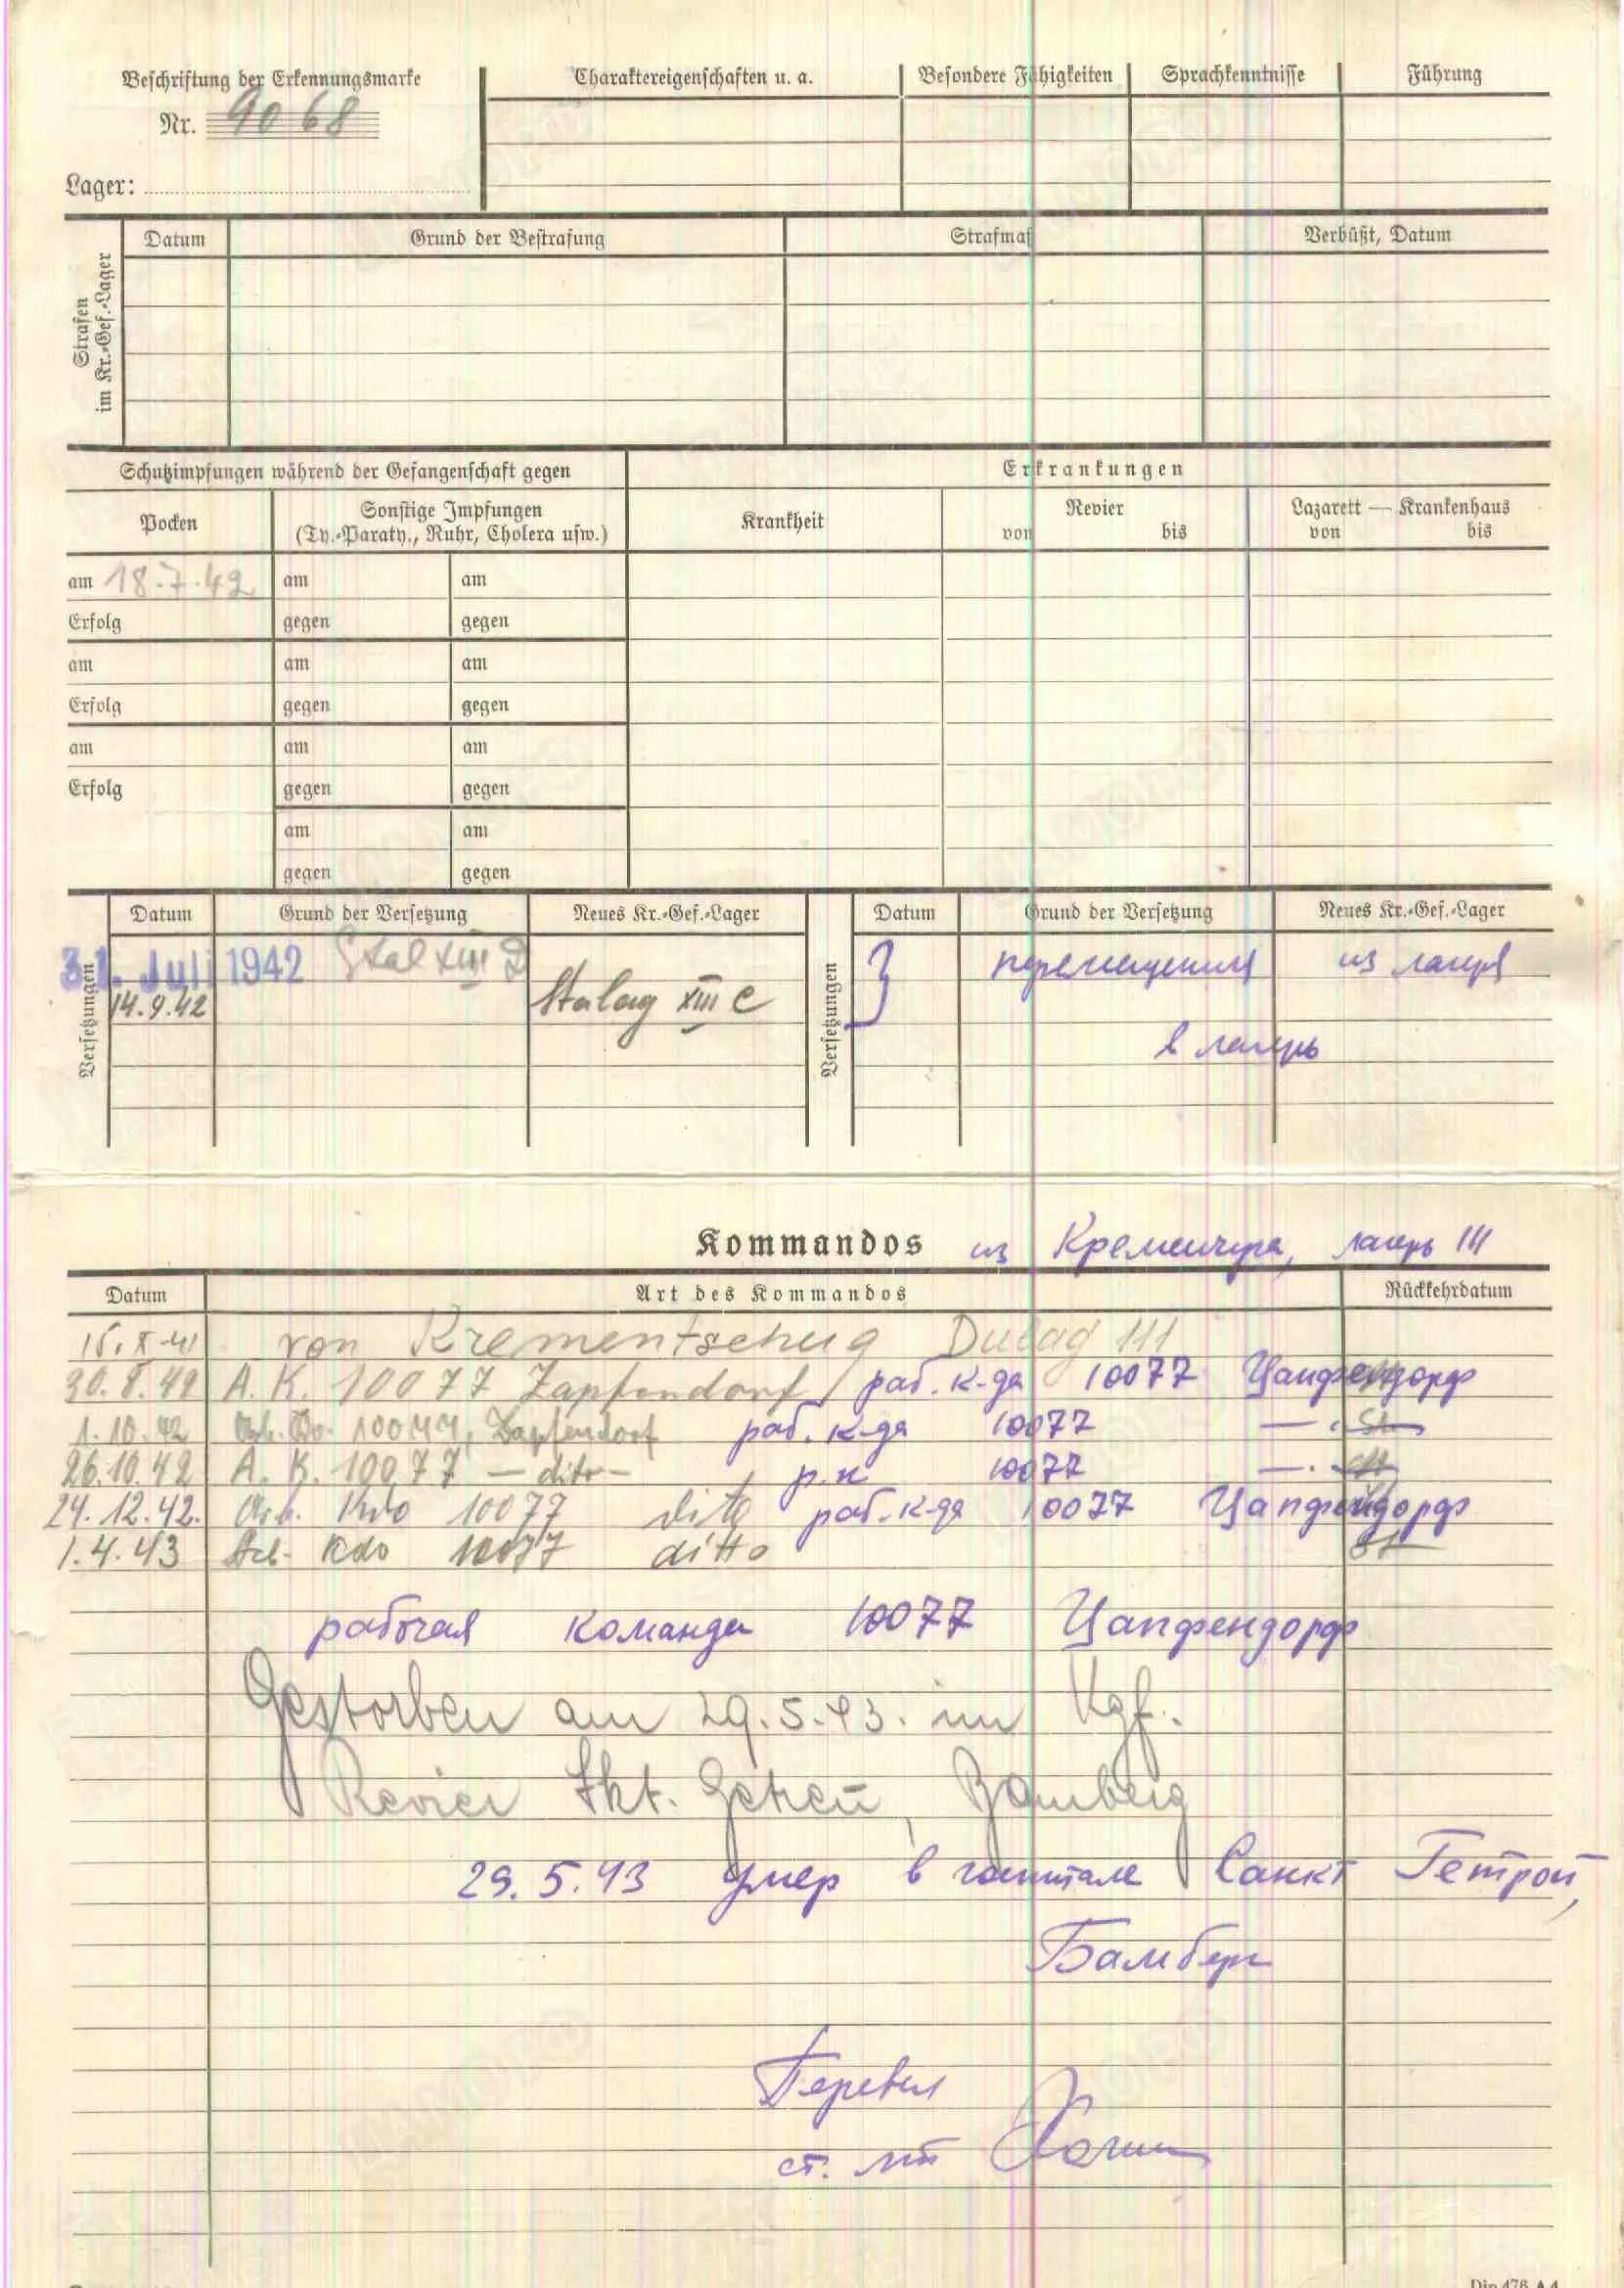 Beschriftung der Erkennungsmarke
Nr. 9068
Lager:
Charaktereigenschaften u. a. Besondere Fähigkeiten Sprachkenntnisse Führung
Strafen
im Kr.-Gef.-Lager
Datum Grund der Bestrafung Strafmaß Verbüßt, Datum
Schutzimpfungen während der Gefangenschaft gegen
Erkrankungen
Pocken
Sonstige Impfungen
(Ty.-Paraty., Ruhr, Cholera usw.)
Krankheit
Revier
von bis
Lazarett — Krankenhaus
von bis
am 18.7.42 am am
Erfolg gegen gegen
am am am
Erfolg gegen gegen
am am am
Erfolg gegen gegen
am am
gegen gegen
Versetzungen
Datum Grund der Versetzung Neues Kr.-Gef.-Lager
31. Juli 1942 Stal XIII D
14.9.42 Stalag XIII C
Versetzungen
Datum Grund der Versetzung Neues Kr.-Gef.-Lager
перемещения из лагеря
в лагерь
Kommandos из Кременчуга, лагерь 111
Datum Art des Kommandos Rückkehrdatum
15.X.41 von Krementschug Dulag 111
30.8.42 A. K. 10077 Zapfendorf / раб. к-да 10077 Цапфендорф
1.10.42 10077, Zapfendorf раб. к-да 10077 — " —
26.10.42 A. K. 10077 — dito — р.к 10077 — " —
24.12.42. Arb. Kdo 10077 dito раб. к-да 10077 Цапфендорф
1.4.43 Arb. Kdo 10077 ditto
рабочая команда 10077 Цапфендорф
Gestorben am 29.5.43. im Kgf.
Revier Skt. Getreu, Bamberg
29.5.43 умер в госпитале Санкт Гетрой,
Бамберг
Перевел
ст. л-т
Din 476 A 4